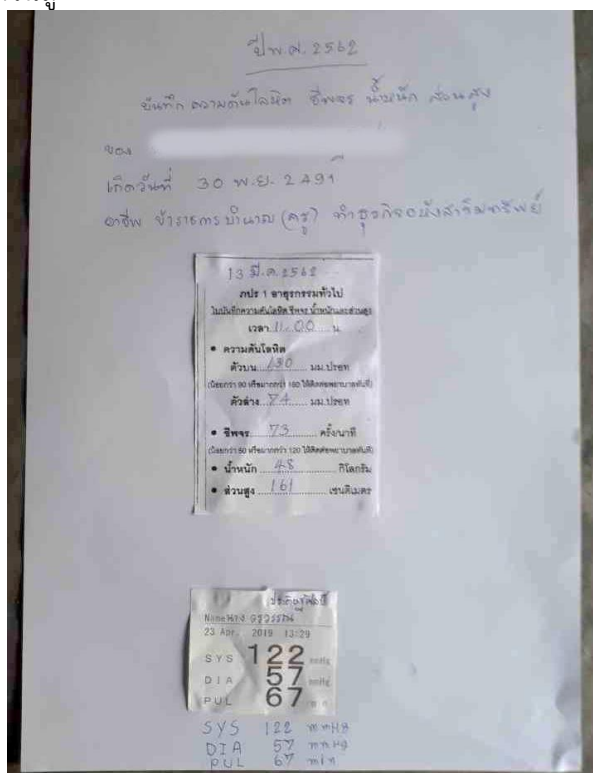 ปีพ.ศ. 2562
บันทึก ความดันโลหิต ชีพจร น้ำหนัก ส่วนสูง
ของ
เกิดวันที่ 30 พ.ย. 2491
อาชีพ ข้าราชการบำนาญ (ครู) ทำธุรกิจอสังหาริมทรัพย์
13 มี.ค. 2562
ภปร 1 อายุรกรรมทั่วไป
ใบบันทึกความดันโลหิต ชีพจร น้ำหนักและส่วนสูง
เวลา 11.00 น
• ความดันโลหิต
ตัวบน 130 มม.ปรอท
(น้อยกว่า 90 หรือมากกว่า 160 ให้ติดต่อพยาบาลทันที)
ตัวล่าง 74 มม.ปรอท
• ชีพจร 73 ครั้ง/นาที
(น้อยกว่า 50 หรือมากกว่า 120 ให้ติดต่อพยาบาลทันที)
• น้ำหนัก 48 กิโลกรัม
• ส่วนสูง 161 เซนติเมตร
Name นาง
23 Apr. 2019 13:29
SYS 122 mmHg
DIA 57 mmHg
PUL 67 min
SYS 122 mmHg
DIA 57 mmHg
PUL 67 min